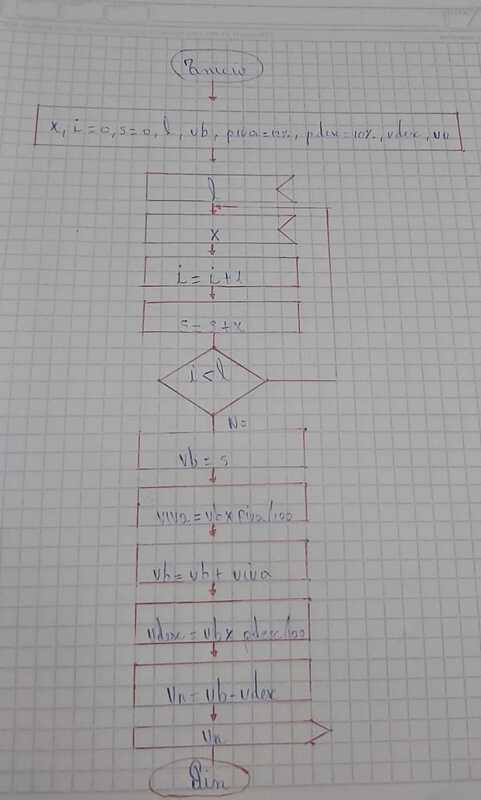 Inicio
x, i=0, s=0, l, vb, piva=12%, pdex=10%, vdex, vn
l
x
i = i+1
s = s+x
i<l
No
vb = s
viva = vb x piva/100
vb = vb + viva
vdex = vb x pdex/100
vn = vb - vdex
vn
Fin